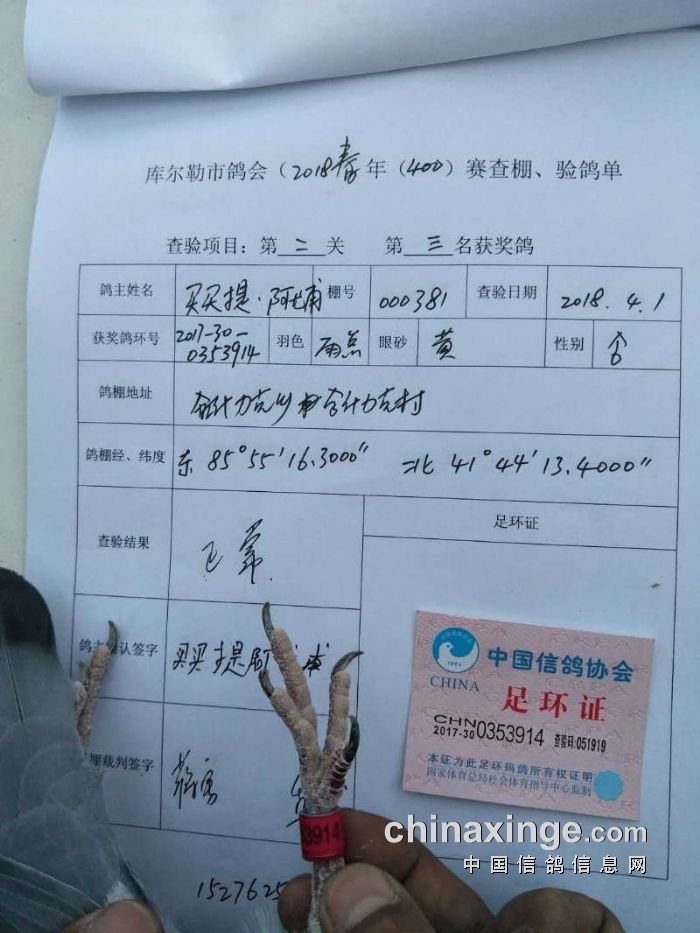 库尔勒市鸽会（2018春年（400）赛查棚、验鸽单
查验项目：第 二 关 第 三 名获奖鸽
鸽主姓名 买买提·阿 甫 棚号 000381 查验日期 2018.4.1
获奖鸽环号 2017-30-0353914 羽色 雨点 眼砂 黄 性别
鸽棚地址 力克村
鸽棚经、纬度 东 85°55′16.3000″ 北 41°44′13.4000″
查验结果 正常 足环证
鸽主 认签字 买买提 甫
棚裁判签字
1527625
中国信鸽协会
CHINA
足环证
CHN
2017-30 0353914 查验码:051919
本证为此足环码鸽所有权证明
国家体育总局社会体育指导中心监制
53914
chinaxinge.com
中国信鸽信息网